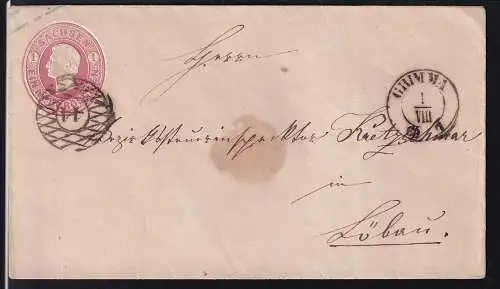 SACHSEN
1
Herrn
14
GRIMMA
1
VIII
Bezirkssteuerinspektor Kretzschmar
in
Löbau.